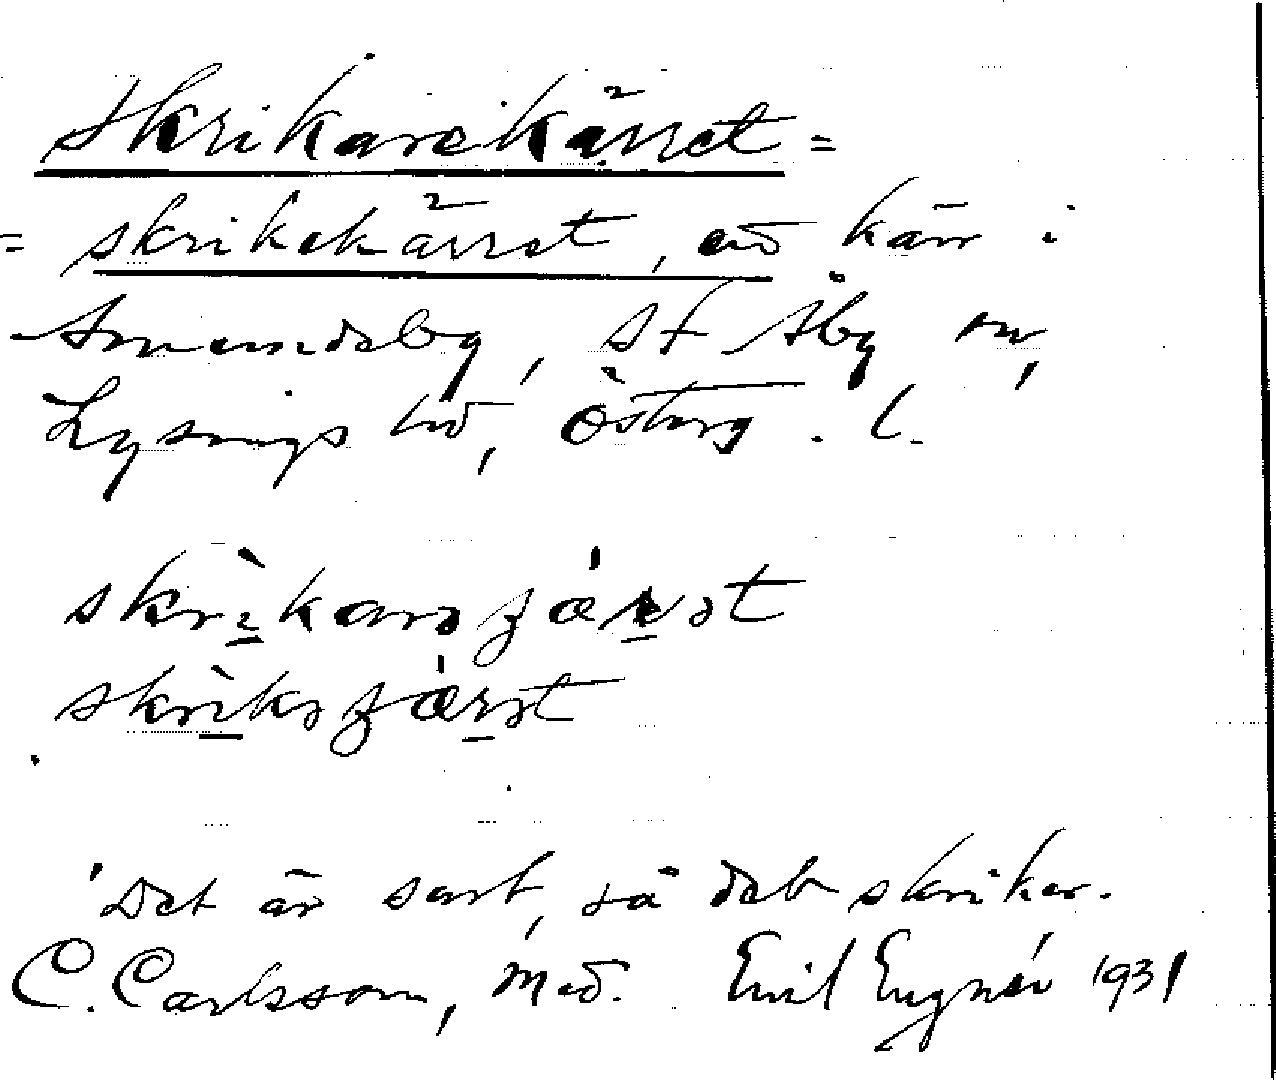 Skrikarekärret =
= skrikekärret, ett kärr i
Amundeby, St Åby sn,
Lysings hd, Österg. l.
skrìkarə jæ'rət
skrìkə jæ'rət
'Det är surt, så det skriker.
C. Carlsson, Med. Emil Engnér 1931